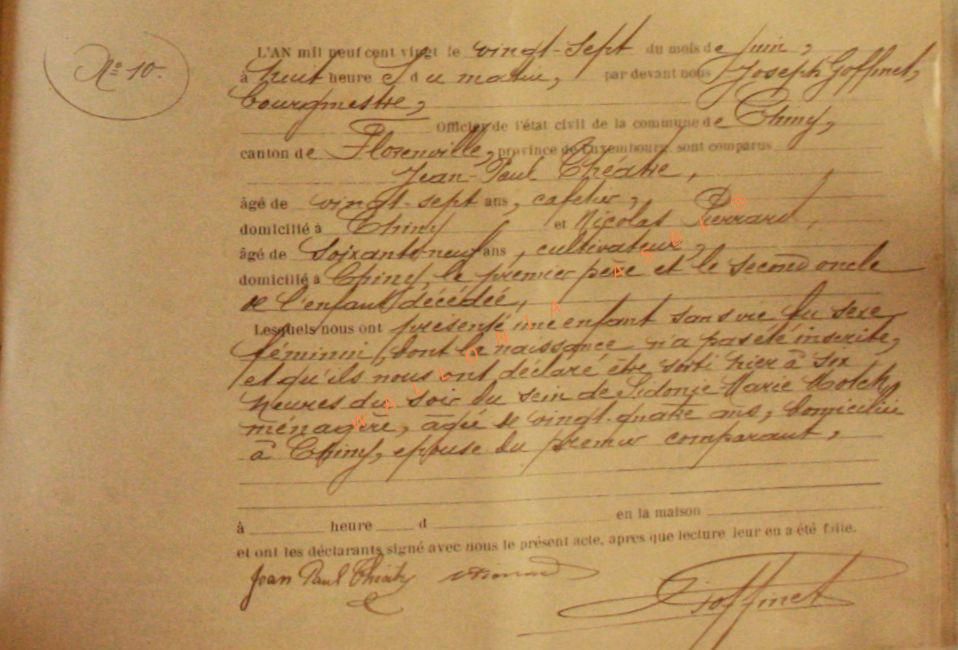 No 10.
L'AN mil neuf cent vingt le vingt-sept du mois de juin,
à huit heure S du matin, par devant nous Joseph Goffinet,
bourgmestre,
Officier de l'état civil de la commune de Chiny,
canton de Florenville, province de Luxembourg, sont comparus
Jean-Paul Théâtre,
âgé de vingt-sept ans, cafetier,
domicilié à Chiny et Nicolas Pierrard,
âgé de soixante-neuf ans, cultivateur,
domicilié à Chiny, le premier père et le second oncle
de l'enfant décédée,
Lesquels nous ont présenté une enfant sans vie du sexe
féminin, dont la naissance n'a pas été inscrite,
et qu'ils nous ont déclaré être sorti hier à six
heures du soir du sein de Sidonie Marie
ménagère, âgée de vingt-quatre ans, domiciliée
à Chiny, épouse du premier comparant,
à heure d en la maison
et ont les déclarants signé avec nous le présent acte, après que lecture leur en a été faite.
Jean Paul Goffinet
WALLONIA ASBL